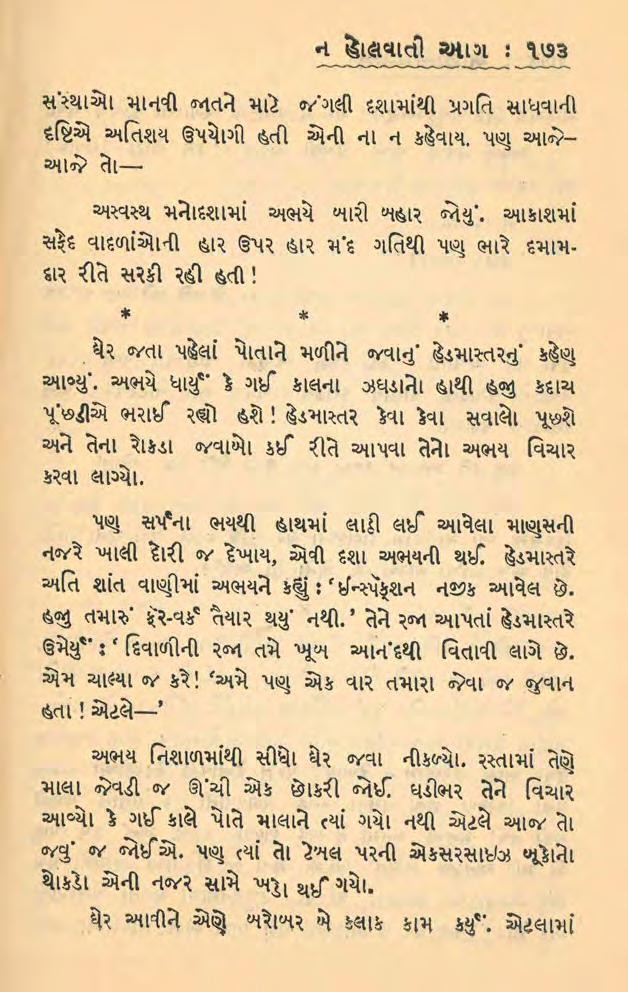 ન હોલવાતી આગ : ૧૭૩
સંસ્થાઓ માનવી જાતને માટે જંગલી દશામાંથી પ્રગતિ સાધવાની
દૃષ્ટિએ અતિશય ઉપયોગી હતી એની ના ન કહેવાય. પણ આજે–
આજે તો—
અસ્વસ્થ મનોદશામાં અભયે બારી બહાર જોયું. આકાશમાં
સફેદ વાદળાંઓની હાર ઉપર હાર મંદ ગતિથી પણ ભારે દમામ-
દાર રીતે સરકી રહી હતી !
* * *
ઘેર જતા પહેલાં પોતાને મળીને જવાનું હેડમાસ્તરનું કહેણ
આવ્યું. અભયે ધાર્યું કે ગઈ કાલના ઝઘડાનો હાથી હજી કદાચ
પૂંછડીએ ભરાઈ રહ્યો હશે ! હેડમાસ્તર કેવા કેવા સવાલો પૂછશે
અને તેના રોકડા જવાબો કઈ રીતે આપવા તેનો અભય વિચાર
કરવા લાગ્યો.
પણ સર્પના ભયથી હાથમાં લાઠી લઈ આવેલા માણસની
નજરે ખાલી દોરી જ દેખાય, એવી દશા અભયની થઈ. હેડમાસ્તરે
અતિ શાંત વાણીમાં અભયને કહ્યું : ‘ઈન્સ્પૅક્શન નજીક આવેલ છે.
હજી તમારું ફૅર-વર્ક તૈયાર થયું નથી.’ તેને રજા આપતાં હેડમાસ્તરે
ઉમેર્યું : ‘ દિવાળીની રજા તમે ખૂબ આનંદથી વિતાવી લાગે છે.
એમ ચાલ્યા જ કરે! ‘અમે પણ એક વાર તમારા જેવા જ જુવાન
હતા ! એટલે—’
અભય નિશાળમાંથી સીધો ઘેર જવા નીકળ્યો. રસ્તામાં તેણે
માલા જેવડી જ ઊંચી એક છોકરી જોઈ. ઘડીભર તેને વિચાર
આવ્યો કે ગઈ કાલે પોતે માલાને ત્યાં ગયો નથી એટલે આજ તો
જવું જ જોઈએ. પણ ત્યાં તો ટેબલ પરની એકસરસાઇઝ બૂકોનો
થોકડો એની નજર સામે ખડો થઈ ગયો.
ઘેર આવીને એણે બરોબર બે કલાક કામ કર્યું. એટલામાં